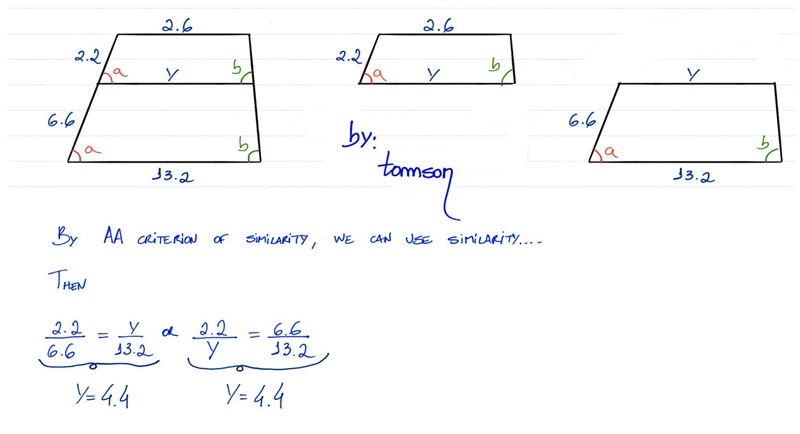 2.6
2.2 a y b
6.6
a b
13.2
2.6
2.2 a y b
y
6.6
a b
13.2
by:
tomson
By AA criterion of similarity, we can use similarity....
Then
2.2/6.6 = y/13.2 or 2.2/y = 6.6/13.2
y=4.4 y=4.4